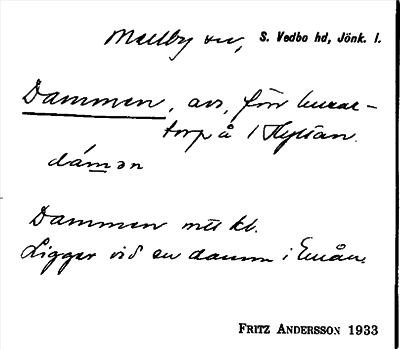 Mellby sn, S. Vedbo hd, Jönk. l.
Dammen, avs, förr kvar-
torp å / Hyltan.
dámən
Dammen mtt kl.
Ligger vid en damm i Emån.
FRITZ ANDERSSON 1933